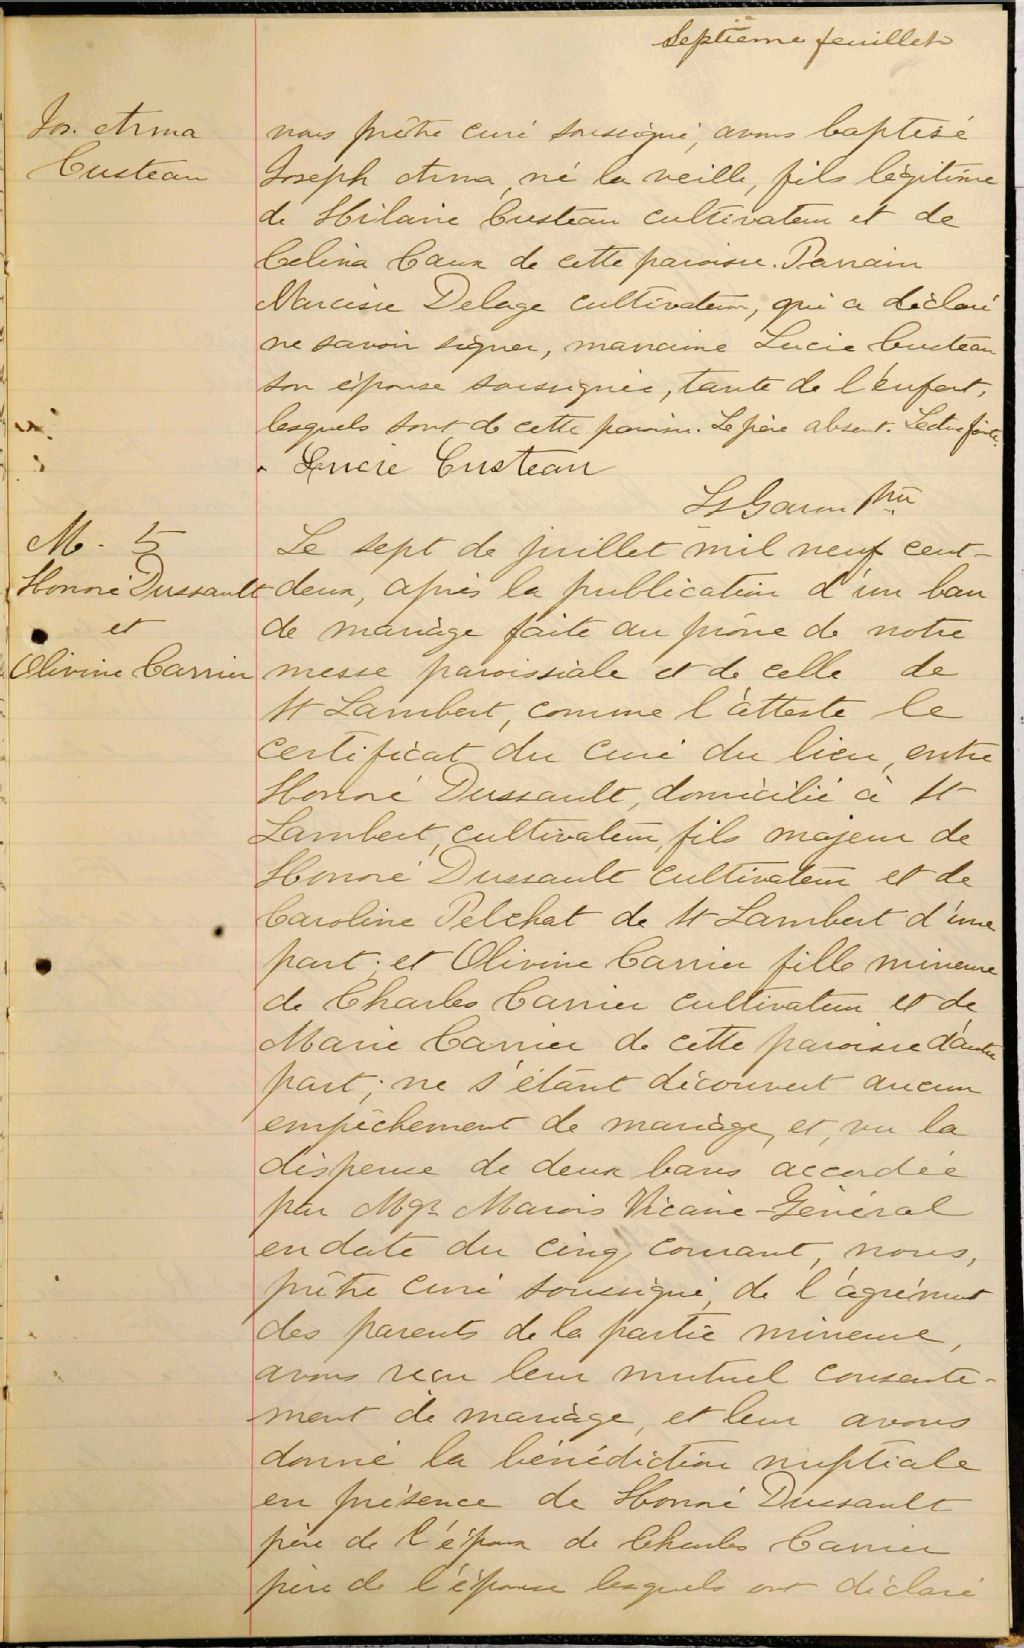 Septième feuillet
Jos. Arma
Custeau
nous prêtre curé soussigné, avons baptisé
Joseph Arma, né la veille, fils légitime
de Hilaire Custeau cultivateur et de
Celina Caux de cette paroisse. Parrain
Narcisse Delage cultivateur, qui a déclaré
ne savoir signer, marraine Lucie Custeau
son épouse soussignée, tante de l'enfant,
lesquels sont de cette paroisse. Le père absent. Lecture faite.
Lucie Custeau
Ls Garon Ptre
M. 5
Honoré Dussault
et
Olivine Carrier
Le sept de juillet mil neuf cent-
deux, après la publication d'un ban
de mariage faite au prône de notre
messe paroissiale et de celle de
St Lambert, comme l'atteste le
certificat du curé du lieu, entre
Honoré Dussault, domicilié à St
Lambert, cultivateur, fils majeur de
Honoré Dussault cultivateur et de
Caroline Pelchat de St Lambert d'une
part; et Olivine Carrier fille mineure
de Charles Carrier cultivateur et de
Marie Carrier de cette paroisse d'autre
part; ne s'étant découvert aucun
empêchement de mariage, et, vu la
dispense de deux bans accordée
par Mgr Marois Vicaire-Général
en date du cinq courant, nous,
prêtre curé soussigné, de l'agrément
des parents de la partie mineure,
avons reçu leur mutuel consente-
ment de mariage, et leur avons
donné la bénédiction nuptiale
en présence de Honoré Dussault
père de l'époux de Charles Carrier
père de l'épouse lesquels ont déclaré